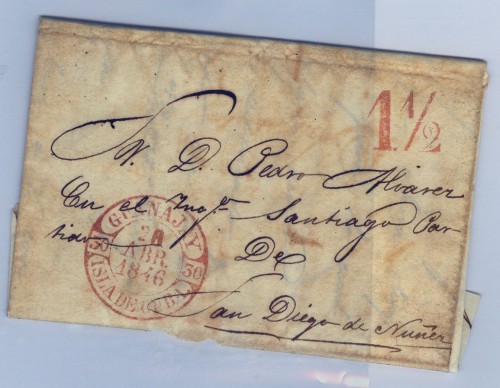 1½
Sr. D. Pedro Alvarez
En el Yng.º Santiago Par-
tido
De
San Diego de Nuñez
GUANAJAY
ABR.
1846
30 30
ISLA DE CUBA